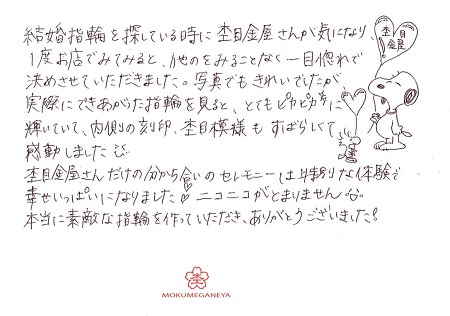 結婚指輪を探している時に杢目金屋さんが気になり、
1度お店でみてみると、他のをみることなく一目惚れで
決めさせていただきました。写真でもきれいでしたが、
実際にできあがった指輪を見ると、とてもピカピカに
輝いていて、内側の刻印、杢目模様もすばらしくて
感動しました
杢目金屋さんだけの分かち合いのセレモニーは特別な体験で
幸せいっぱいになりました ニコニコがとまりません。
本当に素敵な指輪を作っていただき、ありがとうございました!
杢目
金屋
MOKUMEGANEYA